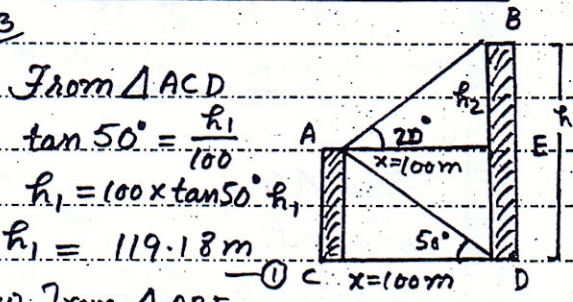 3
From ΔACD
tan 50° = h₁/100
h₁ = 100 x tan 50°
h₁ = 119.18 m
—①
B
h₂
h
A
20°
E
x=100m
h₁
50°
C
x=100m
D